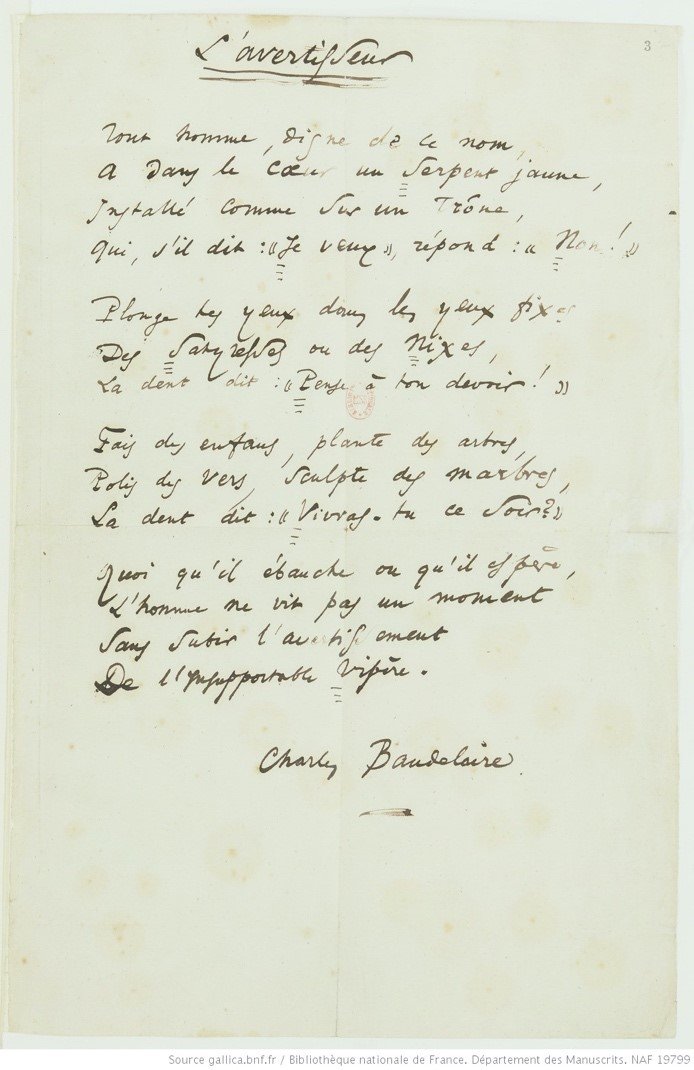 3
L'avertisseur
Tout homme, digne de ce nom,
A dans le cœur un Serpent jaune,
Installé comme sur un Trône,
Qui, s'il dit : « Je veux », répond : « Non ! »
Plonge tes yeux dans les yeux fixes
Des Satyresses ou des Nixes,
La dent dit : « Pense à ton devoir ! »
Fais des enfans, plante des arbres,
Polis des vers, sculpte des marbres,
La dent dit : « Vivras-tu ce soir ? »
Quoi qu'il ébauche ou qu'il espère,
L'homme ne vit pas un moment
Sans subir l'avertissement
De l'insupportable Vipère.
Charles Baudelaire.
Source gallica.bnf.fr / Bibliothèque nationale de France. Département des Manuscrits. NAF 19799